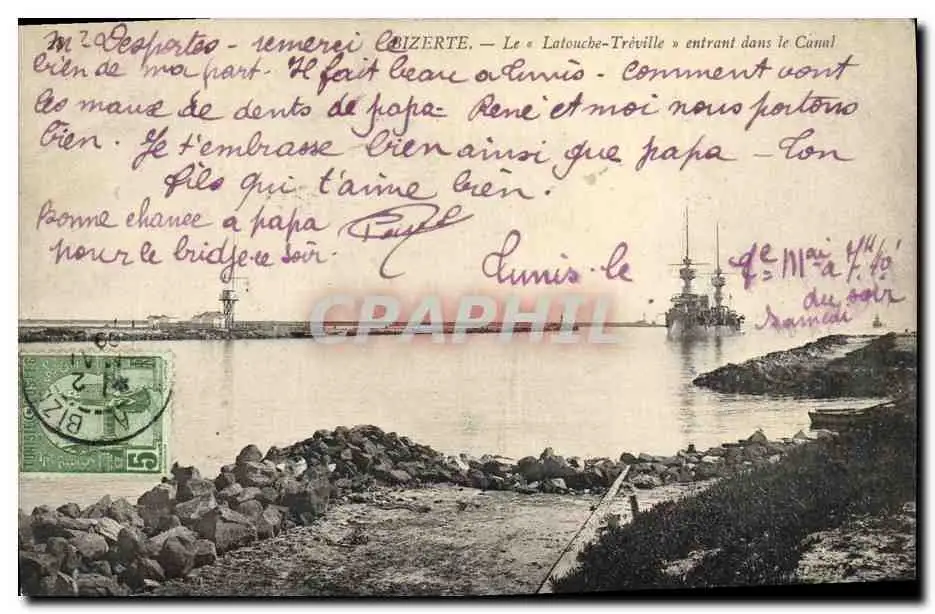 BIZERTE. — Le « Latouche-Tréville » entrant dans le Canal
Mr Desportes - remerci le
bien de ma part. Il fait beau a Tunis. Comment vont
les maux de dents de papa - René et moi nous portons
bien. Je t'embrasse bien ainsi que papa - Ton
fils qui t'aime bien.
Bonne chance a papa
pour le bridge ce soir.
Tunis. le
Mai a 7h
du soir
Samedi
CPAPHIL
BIZ
A
2
5